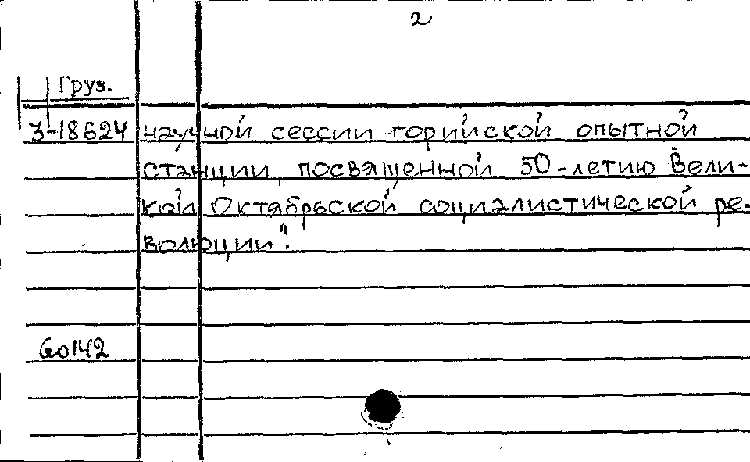 2
Груз.
3-18624 научной сессии горийской опытной
станции, посвященной 50-летию Вели-
кой Октябрьской социалистической ре-
волюции".
60142